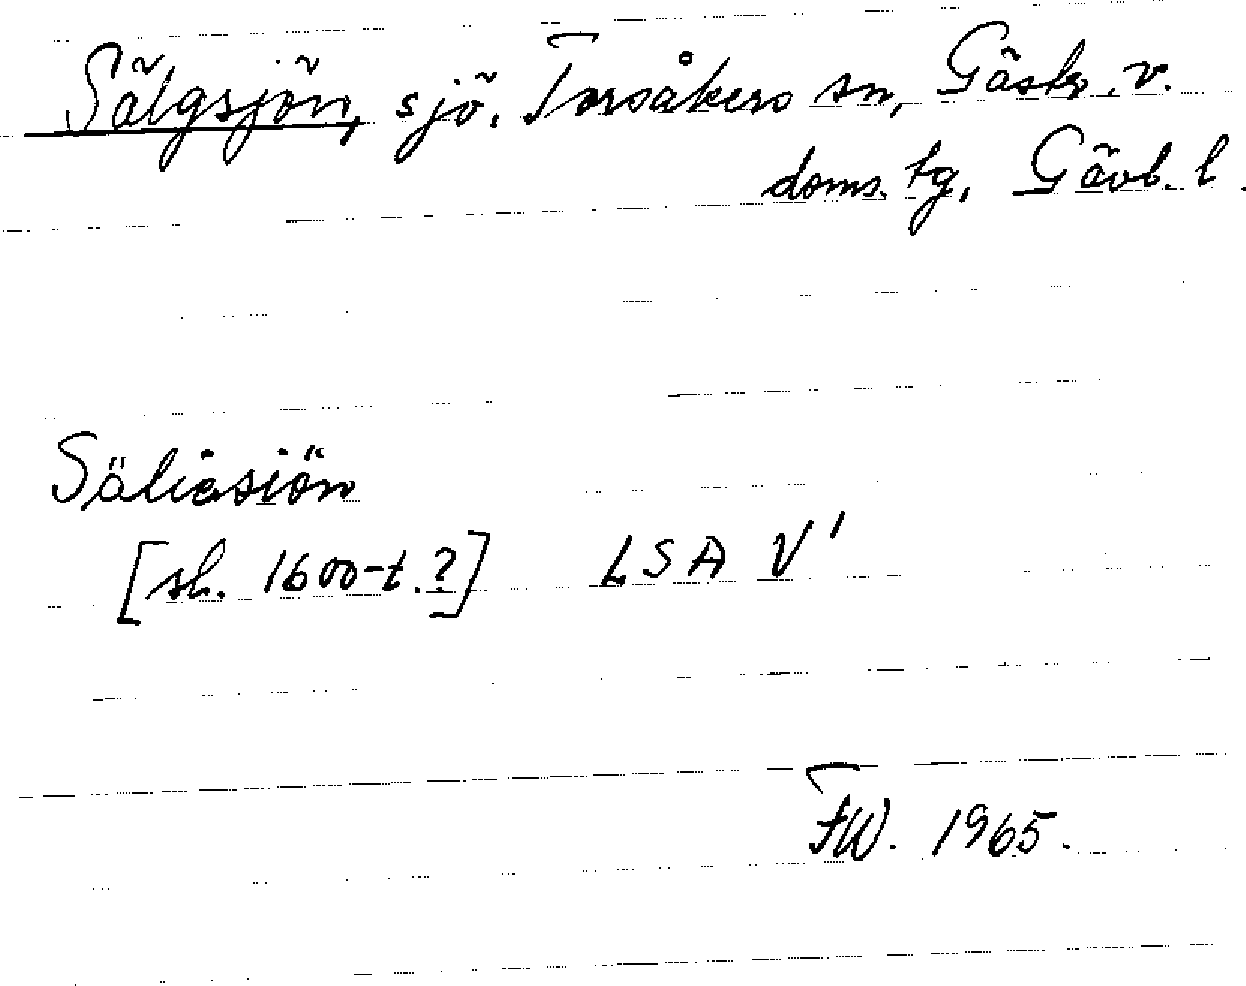 Sälgsjön, sjö. Torsåkers sn, Gästr. v.
doms. tg, Gävb. l.
Säliasiön
[sl. 1600-t.?] LSA V'
FW. 1965.